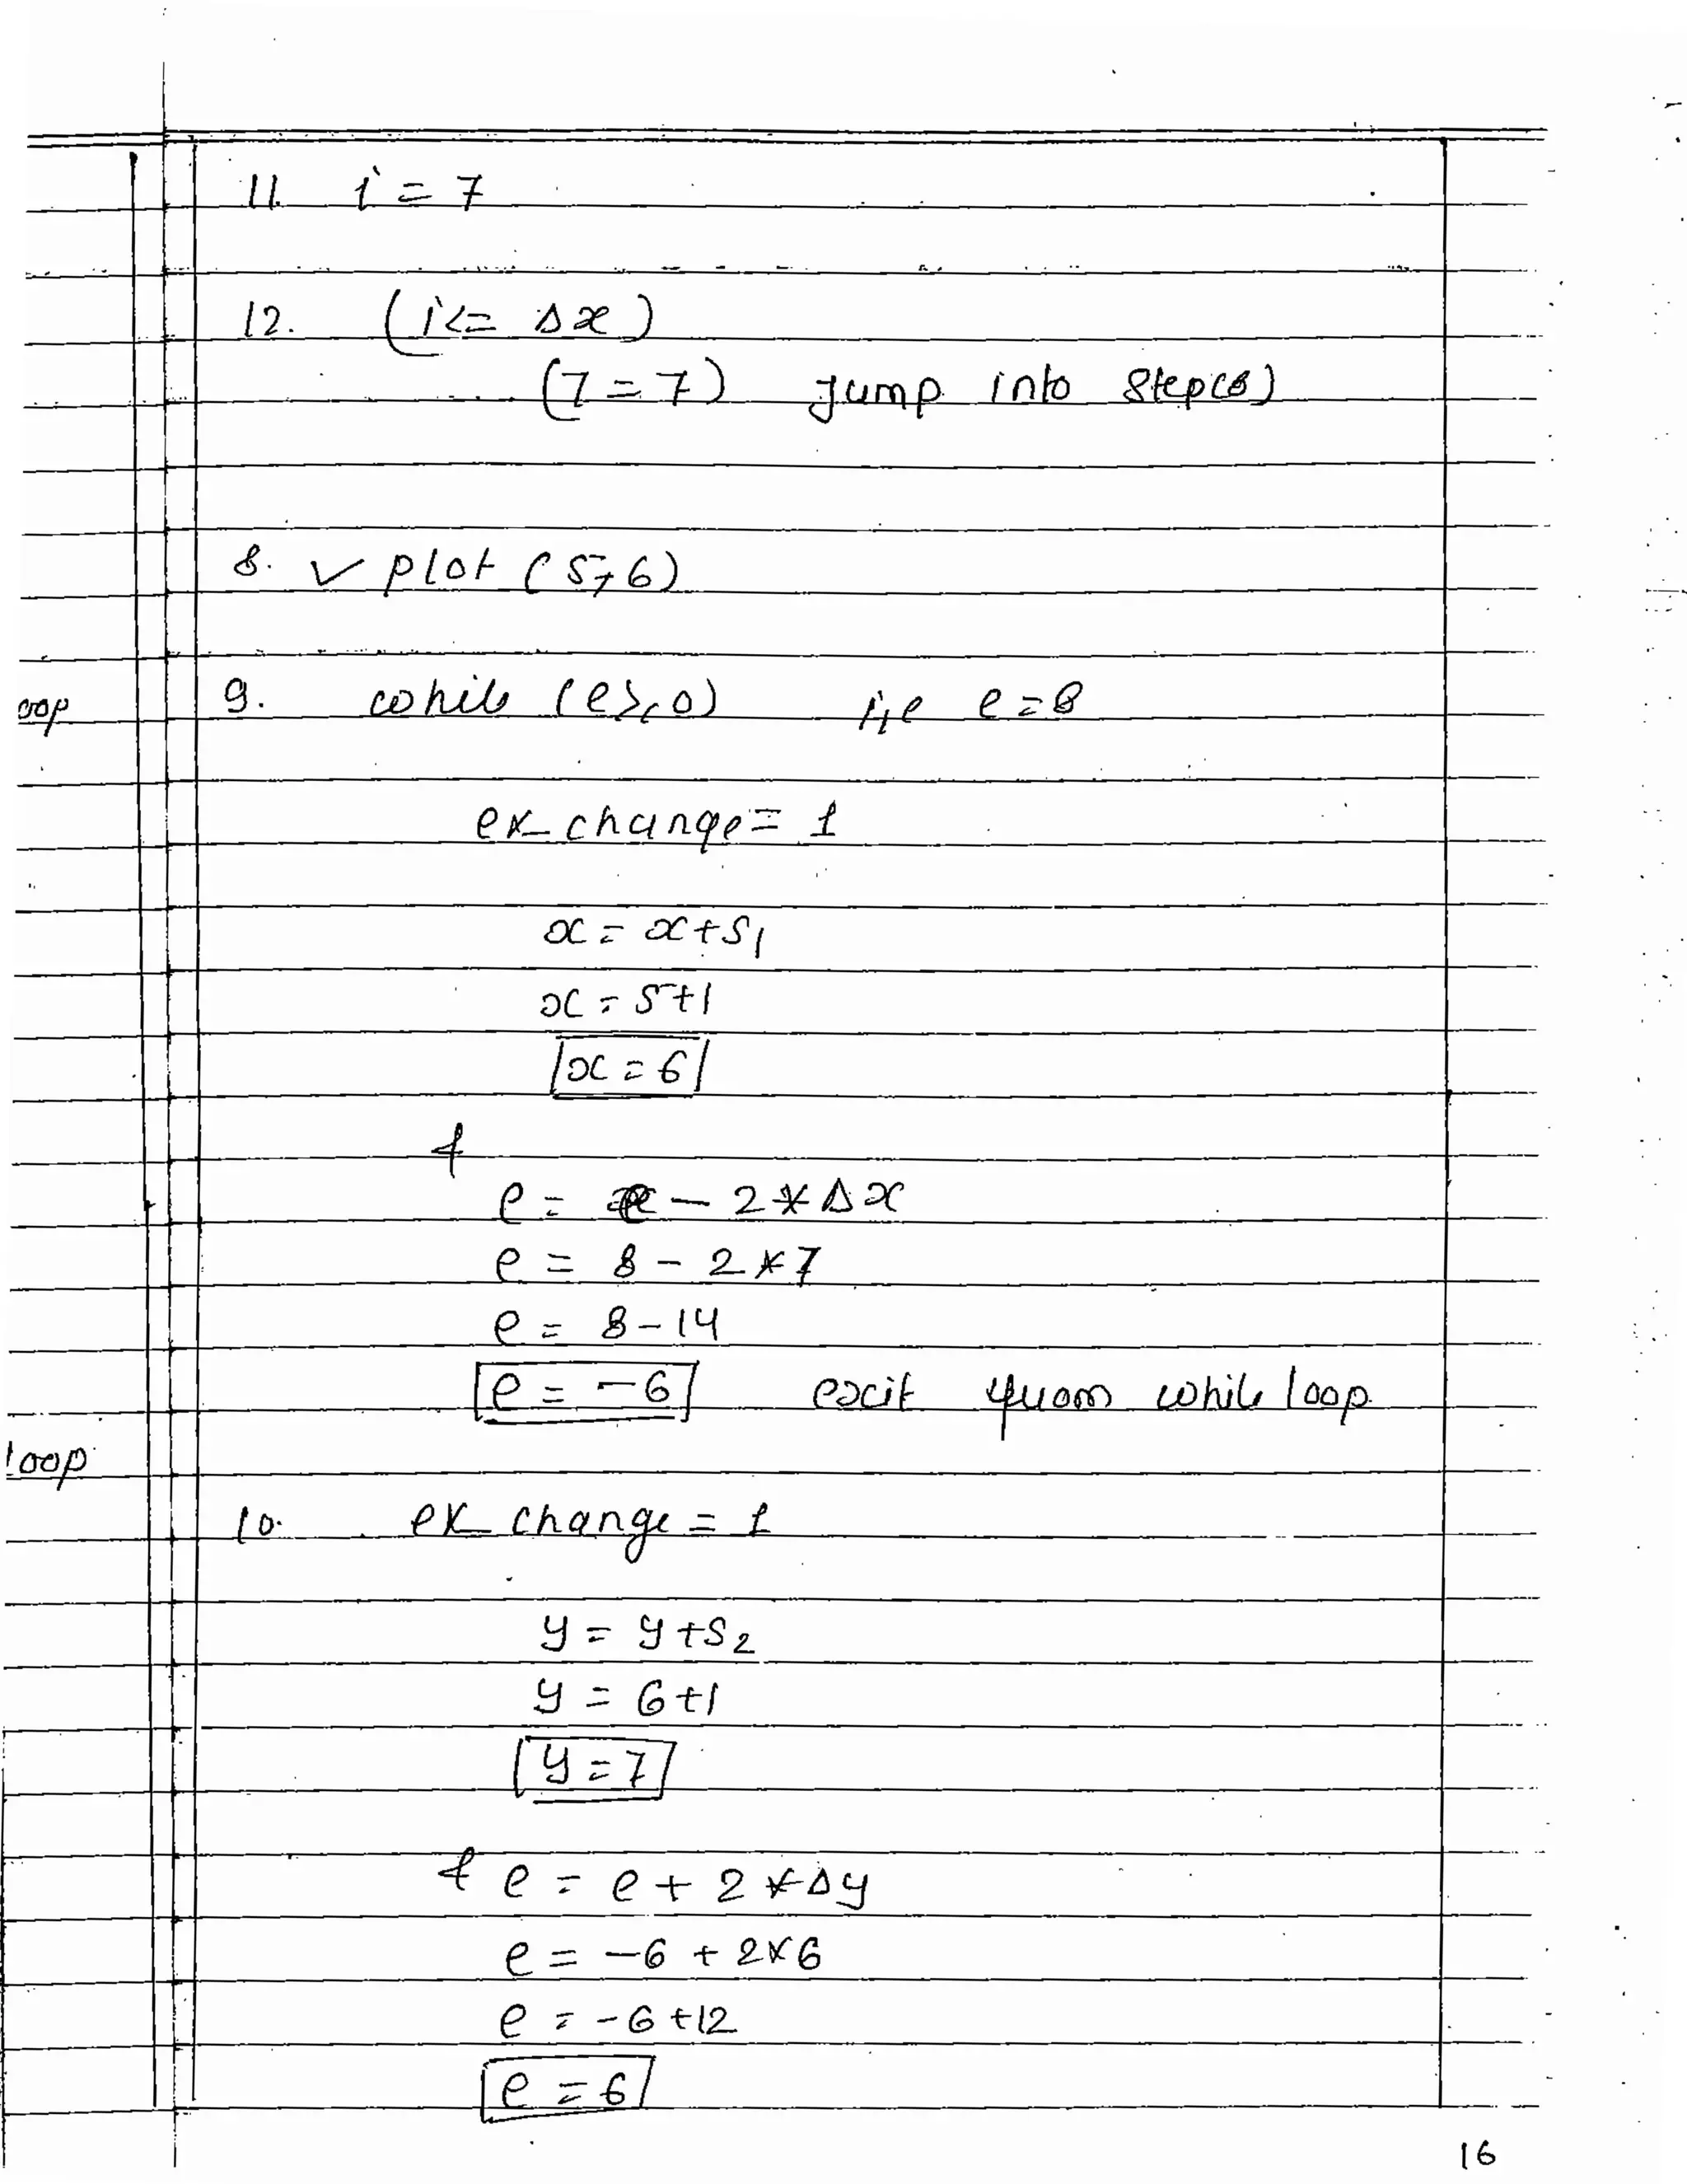 11. i = 7
12. (i<= Δx)
(7 = 7) Jump into Step(8)
8. ✓ plot (5,6)
oop
9. while (e≥0) i,e e=8
ex_change = 1
x = x+S1
x = 5+1
x = 6
&
e = e - 2*Δx
e = 8 - 2*7
e = 8-14
e = -6 exit from while loop
loop
10. ex_change = 1
y = y+S2
y = 6+1
y = 7
& e = e + 2*Δy
e = -6 + 2*6
e = -6+12
e = 6
16